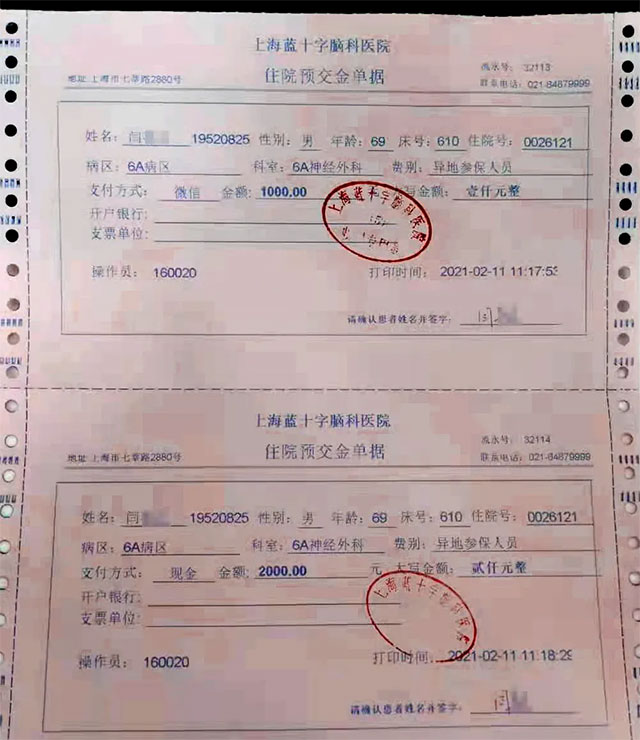 上海蓝十字脑科医院
流水号： 32113
地址 上海市七莘路2880号 住院预交金单据 联系电话：021-64879999
姓名：闫 19520825 性别：男 年龄：69 床号：610 住院号：0026121
病区：6A病区 科室：6A神经外科 费别：异地参保人员
支付方式： 微信 金额：1000.00 大写金额： 壹仟元整
开户银行：
支票单位：
上海蓝十字脑科医院
操作员： 160020 打印时间： 2021-02-11 11:17:53
请确认患者姓名并签字： 闫
上海蓝十字脑科医院
流水号： 32114
地址 上海市七莘路2880号 住院预交金单据 联系电话：021-64879999
姓名：闫 19520825 性别：男 年龄：69 床号：610 住院号：0026121
病区：6A病区 科室：6A神经外科 费别：异地参保人员
支付方式： 现金 金额：2000.00 元 大写金额： 贰仟元整
开户银行：
支票单位：
上海蓝十字脑科医院
操作员： 160020 打印时间： 2021-02-11 11:18:29
请确认患者姓名并签字： 闫